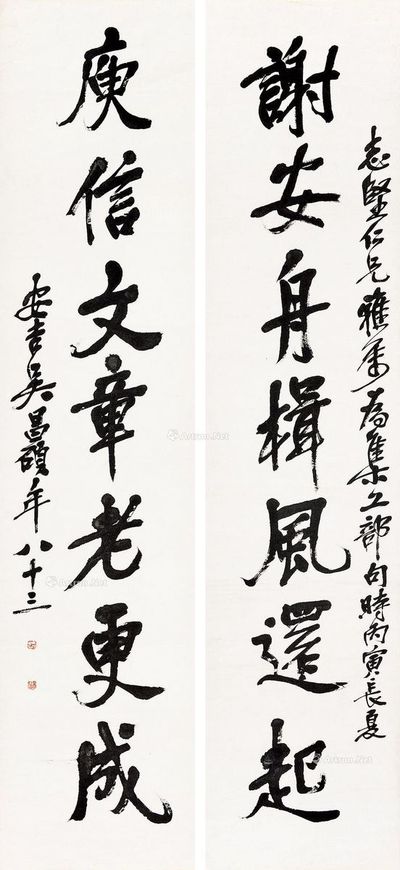 志堅仁兄雅屬為集工部句時丙寅長夏
謝安舟楫風還起
庾信文章老更成
安吉吳昌碩年八十三